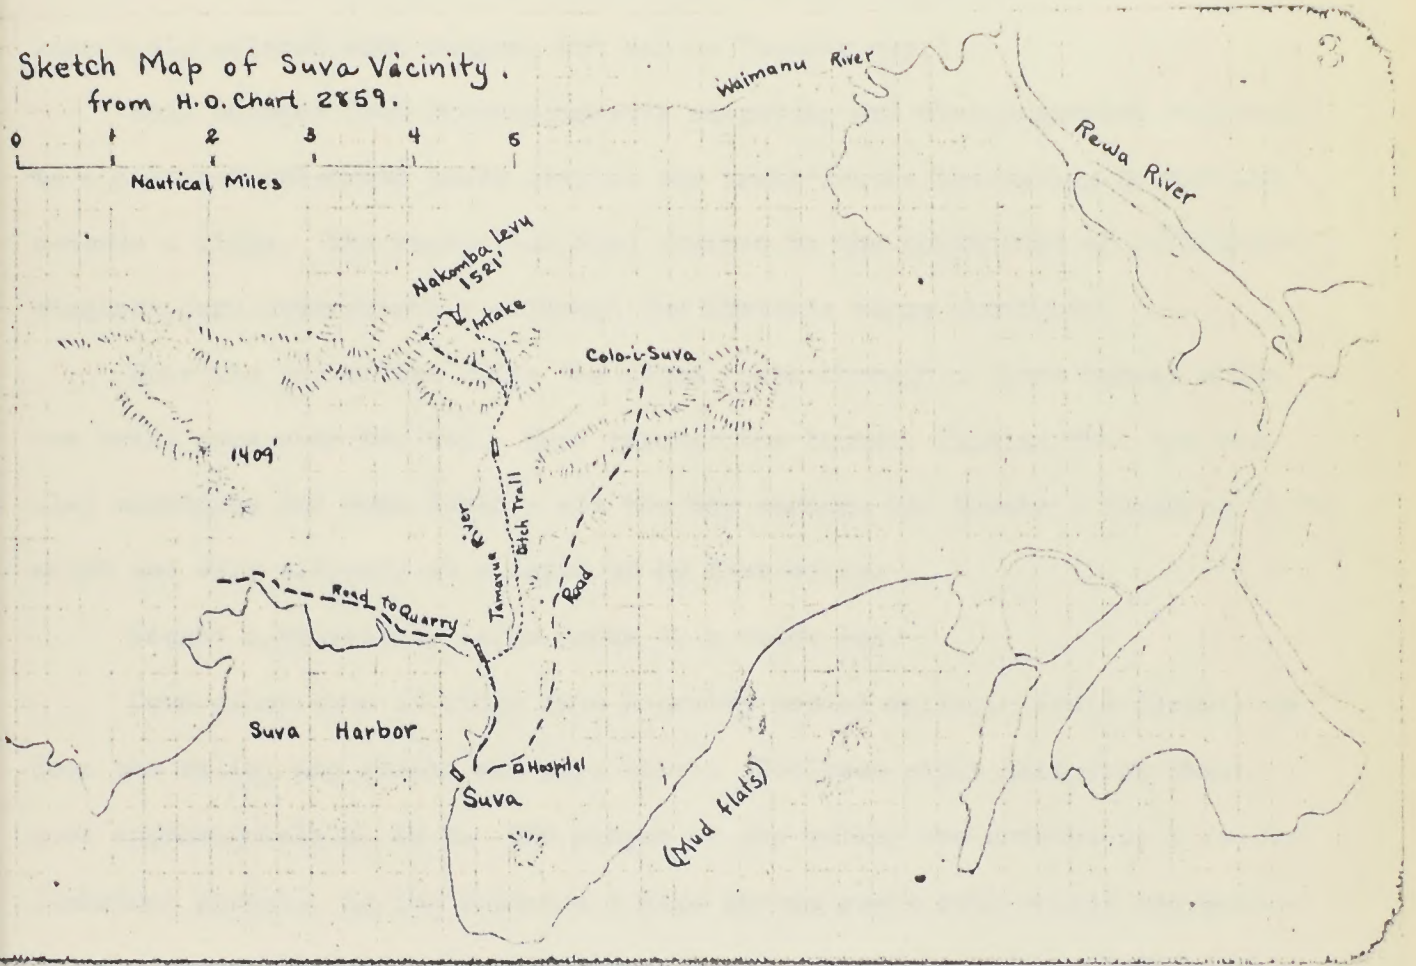 Sketch Map of Suva Vicinity.
from H.O. Chart 2859.
0 1 2 3 4 5
Nautical Miles
Waimanu River
Rewa River
Nakomba Levu
1521'
Intake
Colo-i-Suva
1409'
Tamavua River
Ditch Trail
Road
Road to Quarry
Suva Harbor
Hospital
Suva
(Mud flats)